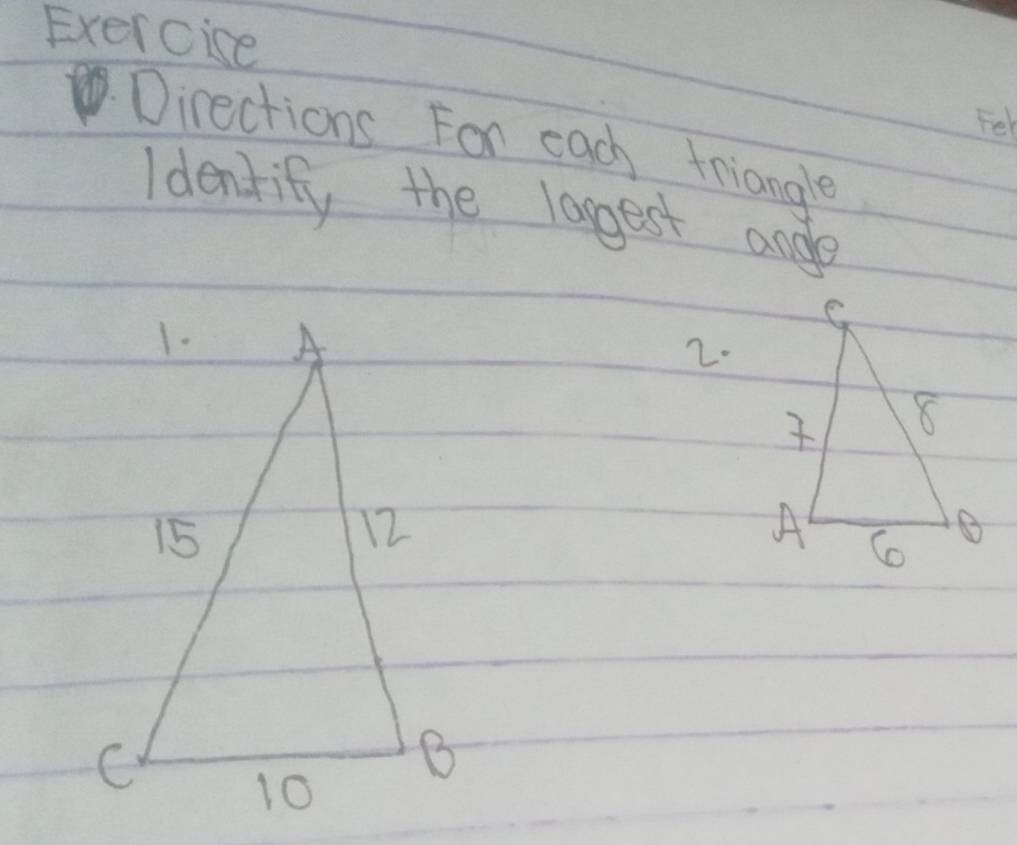 Exercise
Directions For each triangle
Identify the largest angle
1.
A
15
12
C
B
10
2.
C
7
8
A
B
6